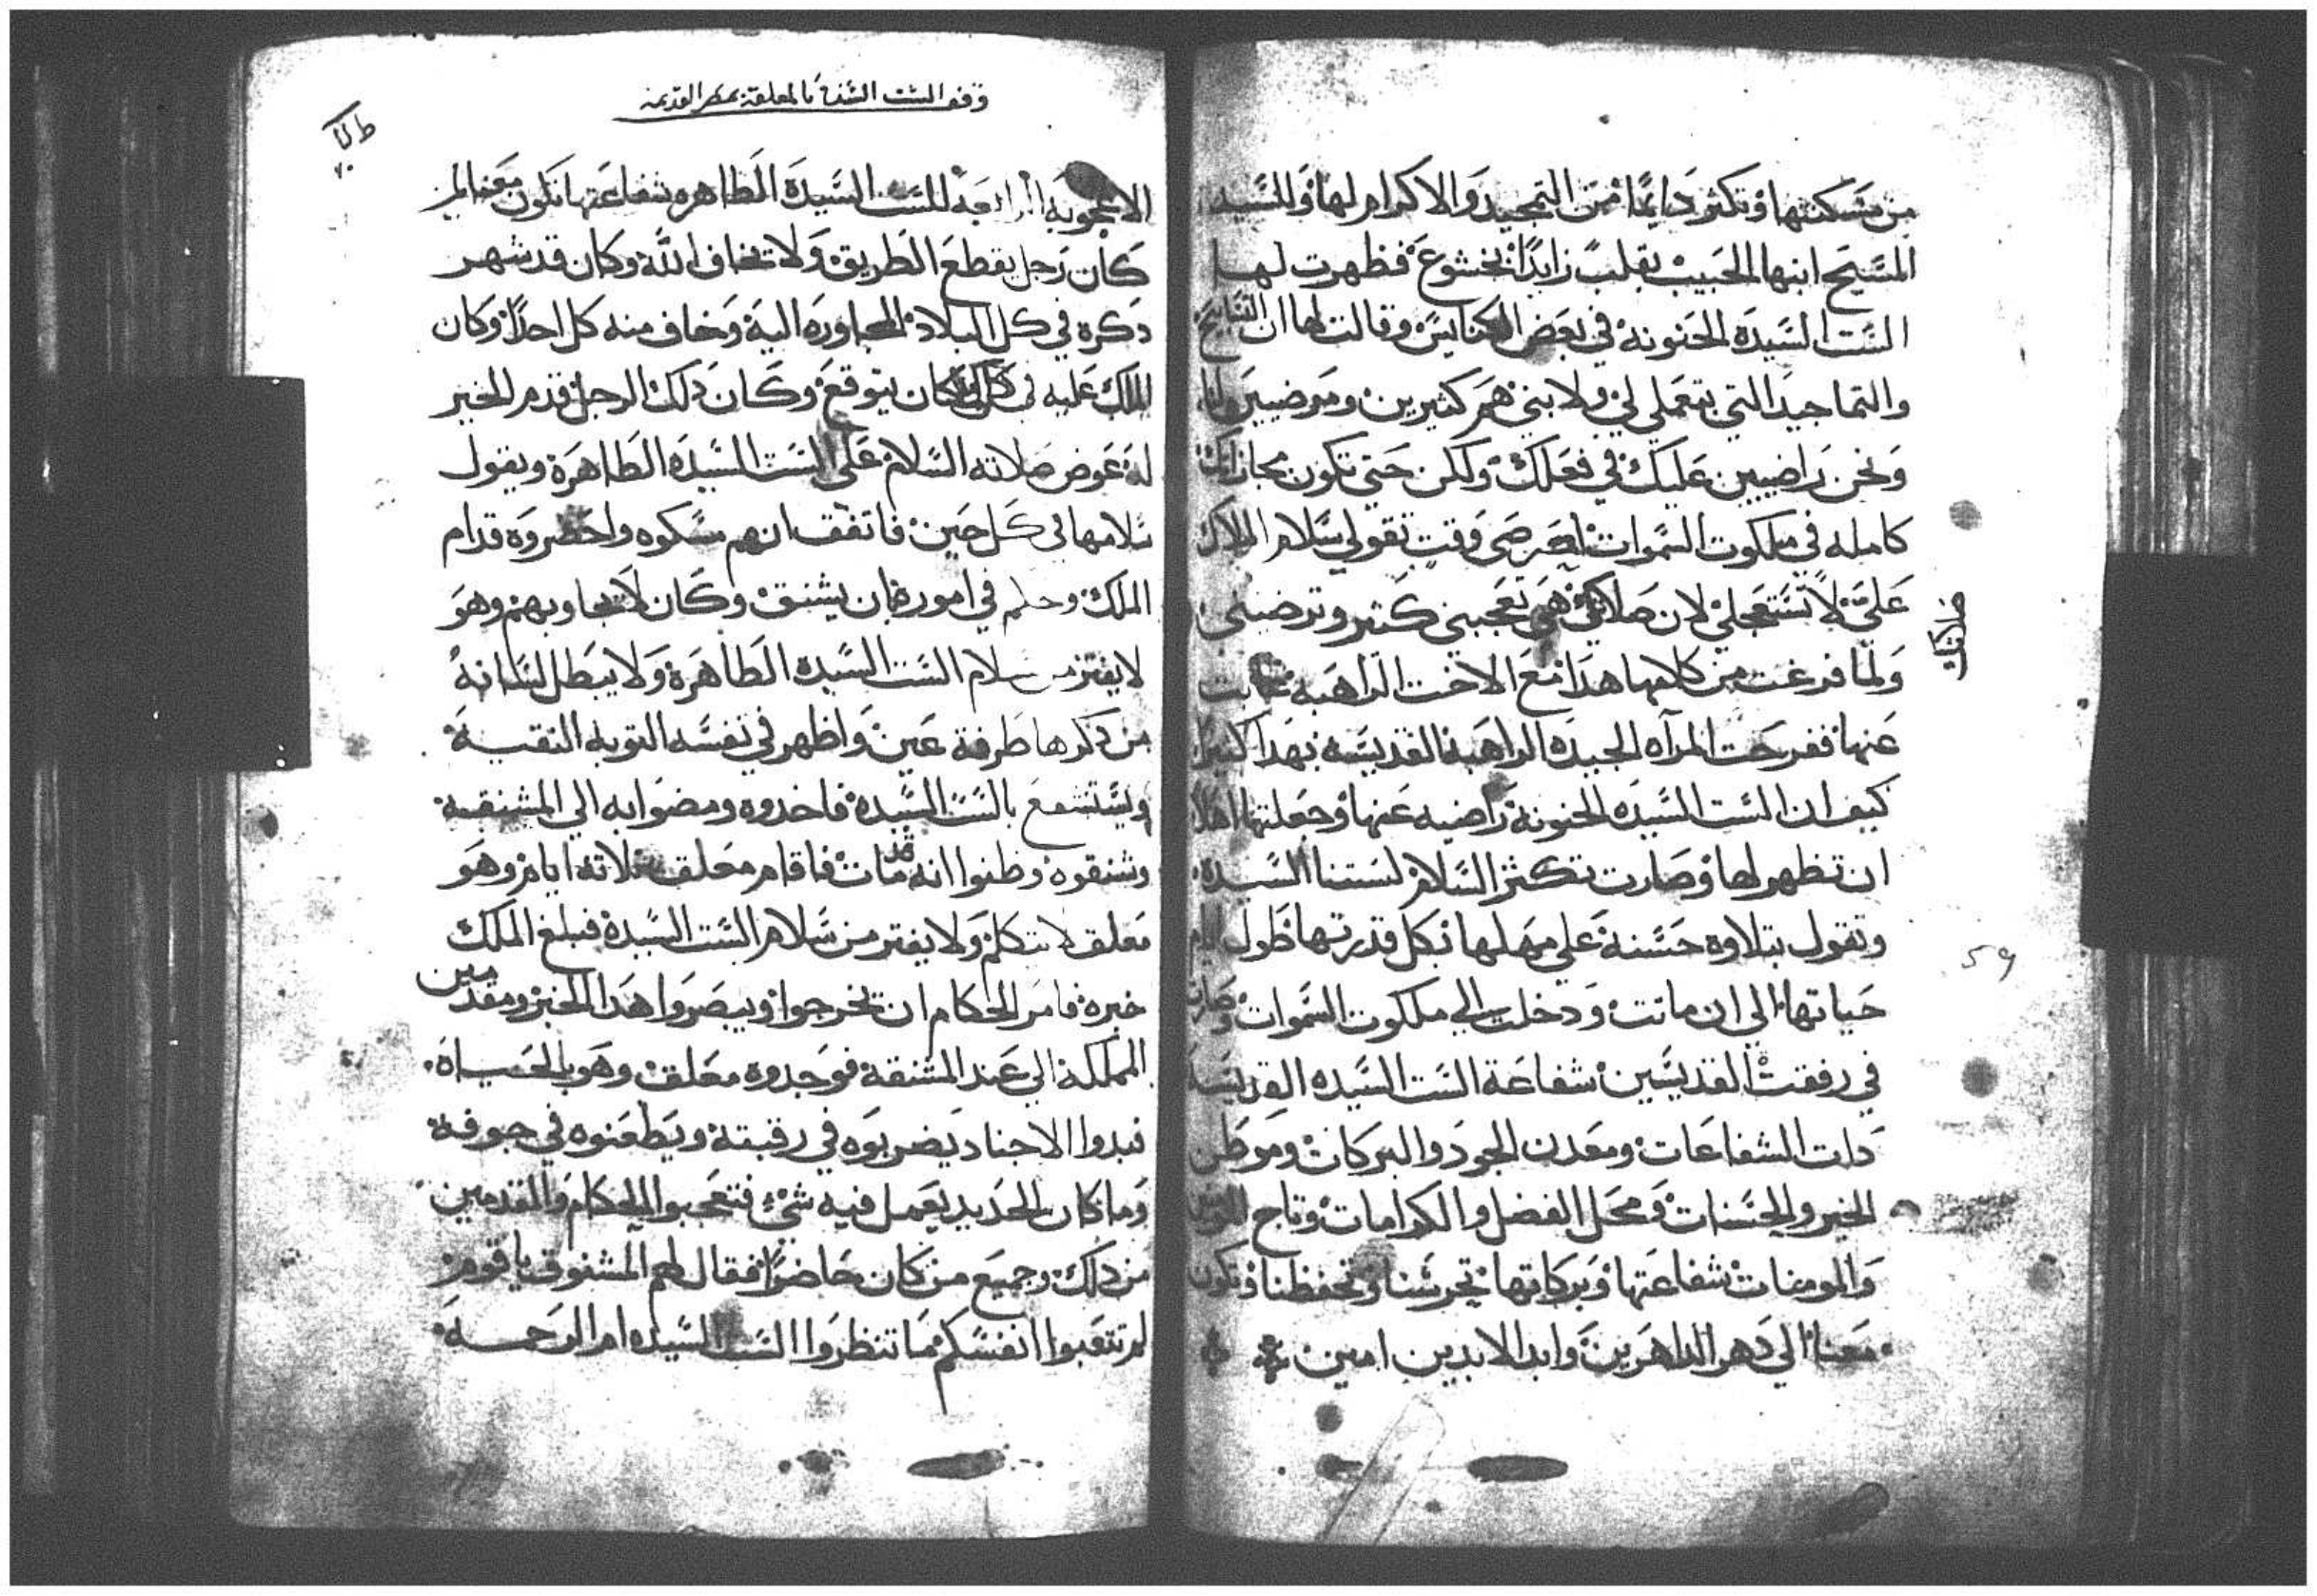 من مسكنها وتكثر دايمًا من التمجيد والاكرام لها وللسيد
المسيح ابنها الحبيب بقلب زايدًا بخشوع فظهرت لها
الست السيده الحنونه في بعض الكنايس وقالت لها ان التسابيح
والتماجيد التي بتعملي لي ولابني هم كثيرين ومرضيين لنا
ونحن راضيين عليك في فعلك ولكن حتي تكون مجازاتك
كامله في ملكوت السموات وقت تقولي سلام الملاك
علي لا تستعجلي لان صلاتك هي تعجبني كثير وترضيني
صلاتك
ولما فرغت من كلامها هدا مع الاخت الراهبه غابت
عنها ففرحت المرآه الجيده الراهبه القديسه بهدا كثيرا
كيف ان الست السيده الحنونة راضيه عنها وجعلتها اهلا
ان تظهر لها وصارت تكثر السلام لستنا السيده
وتقول بتلاوه حسنة علي مهلها بكل قدرتها طول ايام
59
حياتها الي ان ماتت ودخلت الي ملكوت السموات وصارت
في رفقت القديسين شفاعة الست السيده القديسة
دات الشفاعات ومعدن الجود والبركات وموطن
الخير والحسنات ومحل الفضل والكرامات وتاج المومنين
والمومنات شفاعتها وبركاتها تحرسنا وتحفظنا وتكون
معنا الي دهر الداهرين وابد الابدين امين
وقف الست السيدة بالمعلقة بمصر القديمه
الاعجوبه الرابعة للست السيدة الطاهره شفاعتها تكون معنا امين
كان رجل يقطع الطريق ولا يخاف الله وكان قد شهر
دكره في كل البلاد المجاوره اليه وخاف منه كل احدًا وكان
الملك عليه في كل مكان يتوقع وكان دلك الرجل قدم الخير
له عوض صلاته السلام علي الست السيده الطاهرة ويقول
سلامها في كل حين فاتفق انهم مسكوه واحضروه قدام
الملك وحكم في اموره بان يشنق وكان لا يجاوبهم وهو
لا يفتر من سلام الست السيده الطاهرة ولا يبطل لسانه
من دكرها طرفة عين واظهر في نفسه التوبه النقية
ويستشفع بالست السيدة فاخدوه ومضوا به الي المشنقة
وشنقوه وظنوا انه قد مات فاقام معلق تلاتة ايام وهو
معلق لا يتكلم ولا يفتر من سلام الست السيدة فبلغ الملك
خبره فامر الحكام ان يخرجوا ويبصروا هدا الخبر ومقدمين
المملكة الي عند المشنقة فوجدوه معلق وهو بالحياة
فبدوا الاجناد يضربوه في رقبتة ويطعنوه في جوفة
وما كان الحديد يعمل فيه شئ فتعجبوا الحكام والمقدمين
من دلك وجميع من كان حاضرًا فقال لهم المشنوق يا قوم
لم تتعبوا انفسكم ما تنظروا الست السيده ام الرحمة